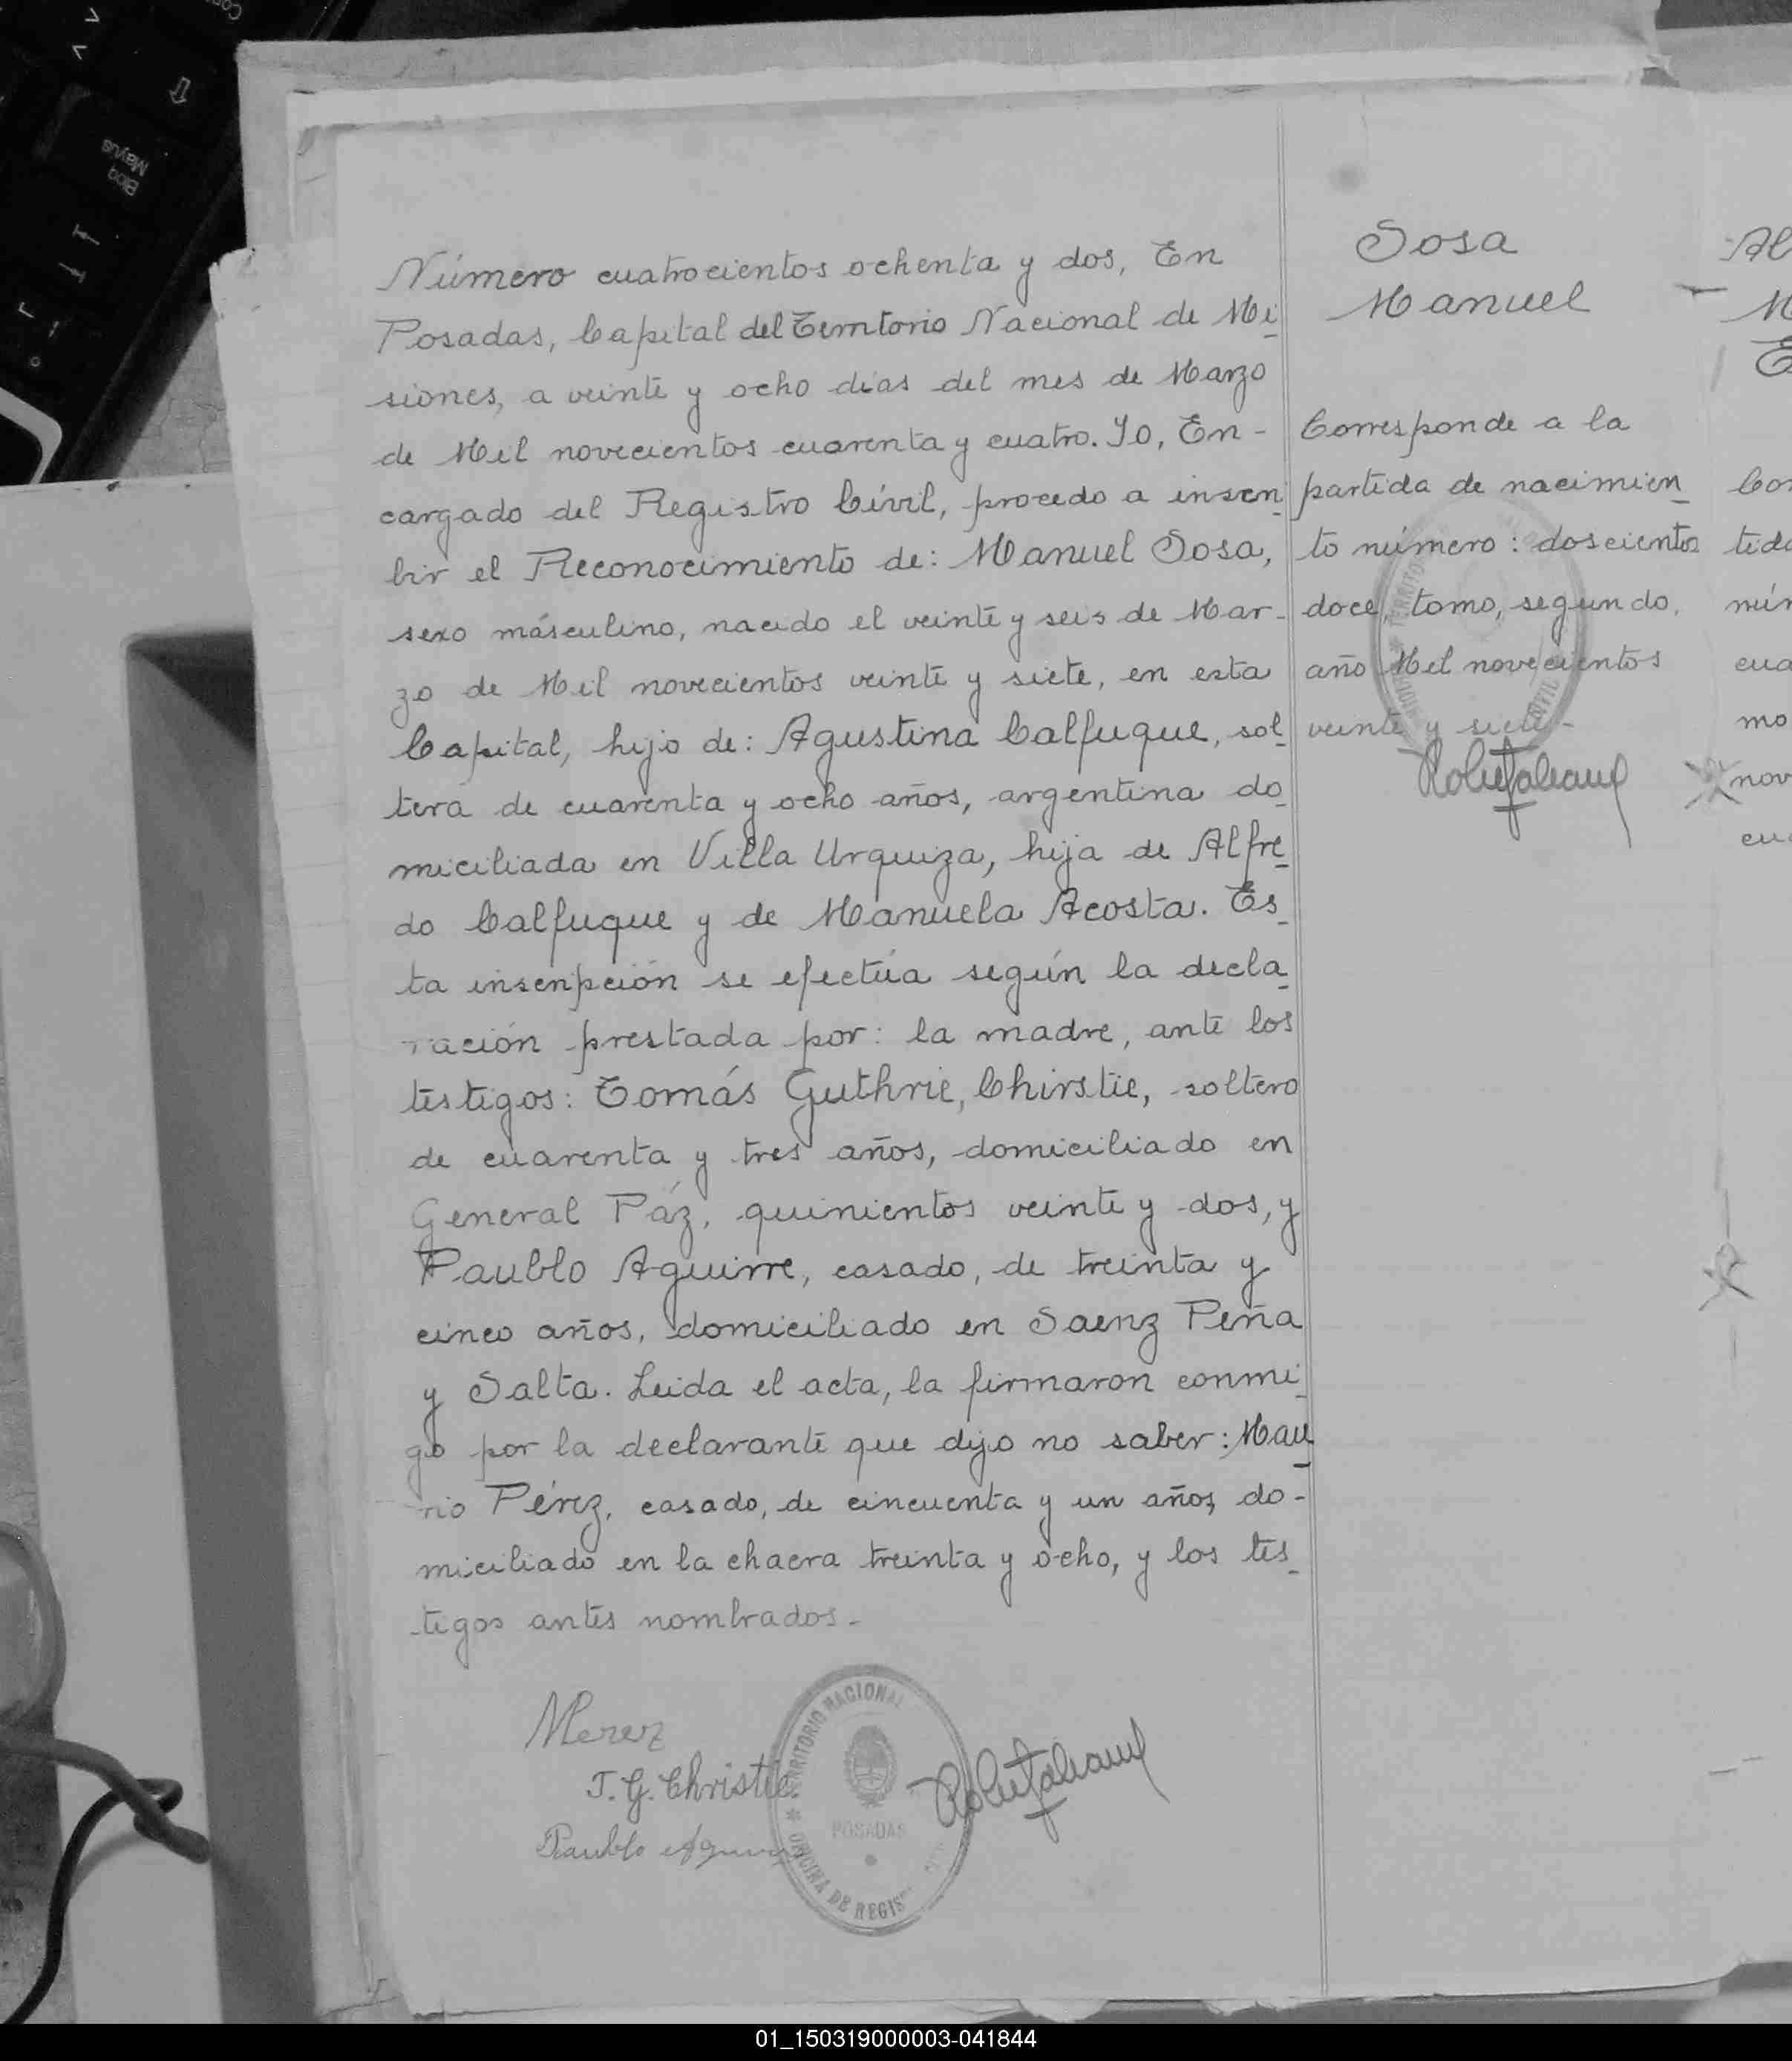 Número cuatrocientos ochenta y dos, En
Posadas, Capital del Territorio Nacional de Mi
siones, a veinte y ocho días del mes de Marzo
de Mil novecientos cuarenta y cuatro. Yo, En-
cargado del Registro Cívil, procedo a inscri
bir el Reconocimiento de: Manuel Sosa,
sexo másculino, nacido el veinte y seis de Mar-
zo de Mil novecientos veinte y siete, en esta
Capital, hijo de: Agustina Calfuque, sol
tera de cuarenta y ocho años, argentina do
miciliada en Villa Urquiza, hija de Alfre
do Calfuque y de Manuela Acosta. Es
ta inscripción se efectúa según la decla
ración prestada por: la madre, ante los
testigos: Tomás Guthrie, Chirstie, soltero
de cuarenta y tres años, domiciliado en
General Páz, quinientos veinte y dos, y
Paublo Aguirre, casado, de treinta y
cinco años, domiciliado en Saenz Peña
y Salta. Leida el acta, la firmaron conmi
go por la declarante que dijo no saber: Mau
rio Pérez, casado, de cincuenta y un años, do-
miciliado en la chacra treinta y ocho, y los tes
tigos antes nombrados.-
MPerez
T. G. Christie
Paublo Aguirre
TERRITORIO NACIONAL
POSADAS
OFICINA DE REGIS
Sosa
Manuel
Corresponde a la
partida de nacimien
to número: doscientos
doce, tomo, segundo,
año Mil novecientos
veinte y siete-
Al
M
E
Cor
tida
núm
cua
mo
nov
cua
Bloq
Mayus
01_150319000003-041844